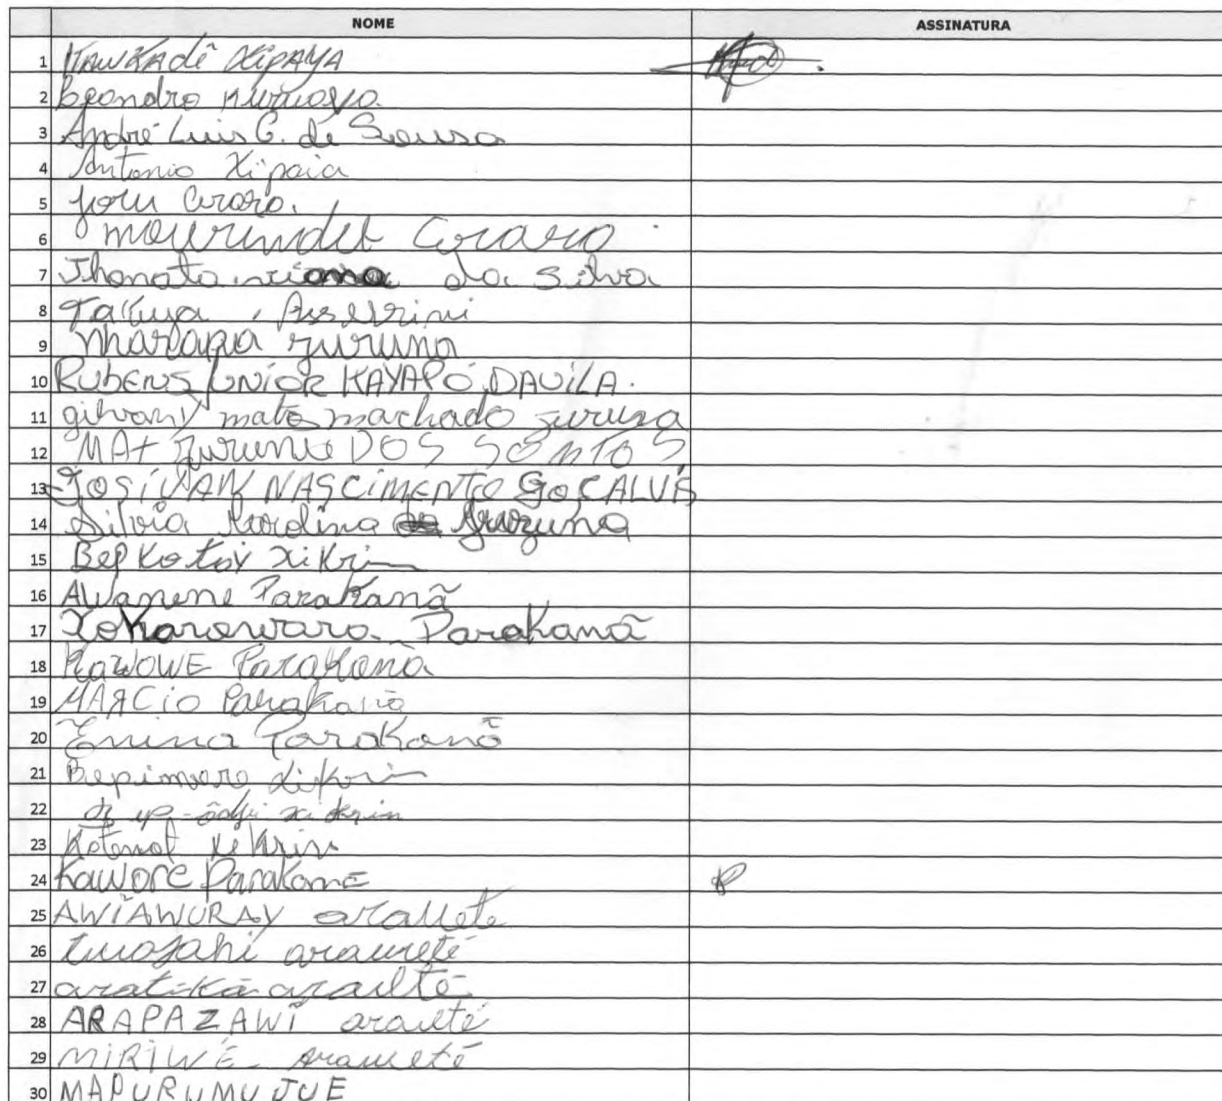 NOME ASSINATURA
1 Kawkadê Xipaya
2 Leandro Kuruaya
3 André Luis G. de Sousa
4 Antonio Xipaia
5 Arara.
6 Arara
7 Jhonata Viana da Silva
8 Takuya Assurini
9 Maraapa Juruna
10 RUBENS JUNIOR KAYAPÓ DAVILA.
11 gilvany mato machado juruna
12 MAt juruna DOS SONTOS
13 JOSIVAN NASCIMENTO GOCALVIS
14 Silvia Juruna
15 Bep Kotoy xikrin
16 AWanene Parakanã
17 Xokarowara Parakanã
18 KawoWE Parakanã
19 MARCIO Parakanã
20 Enina Parakanã
21 Bepimoro Xikrin
22 xikrin
23 Xikrin
24 KaWORE Parakane
25 AWIAWURAY araweté
26 araweté
27 aratikã araweté
28 ARAPAZAWI araweté
29 MIRIWÉ araweté
30 MAPURUMU JUE